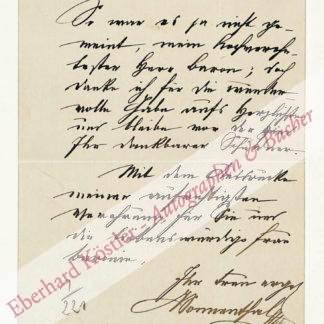 So war es ja nicht ge-
meint, mein hochverehr-
tester Herr Baron; doch
danke ich für die wunder
volle Gabe aufs Herzlichste
und bleibe vor der
Ihr dankbarer Schuldner.
Mit dem Ausdrucke
meiner aufrichtigsten
Verehrung für Sie und
die liebenswürdige Frau
Baronin
Ihr treu ergeb
Sonnenthal
1
221
Eberhard Köstler - Autographen & Bücher